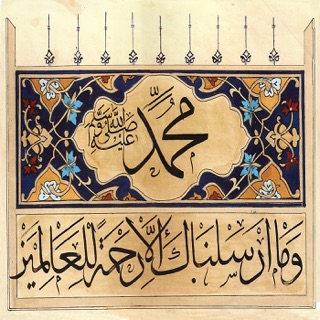 محمد صلى الله عليه وسلم
وما ارسلناك الا رحمة للعالمين